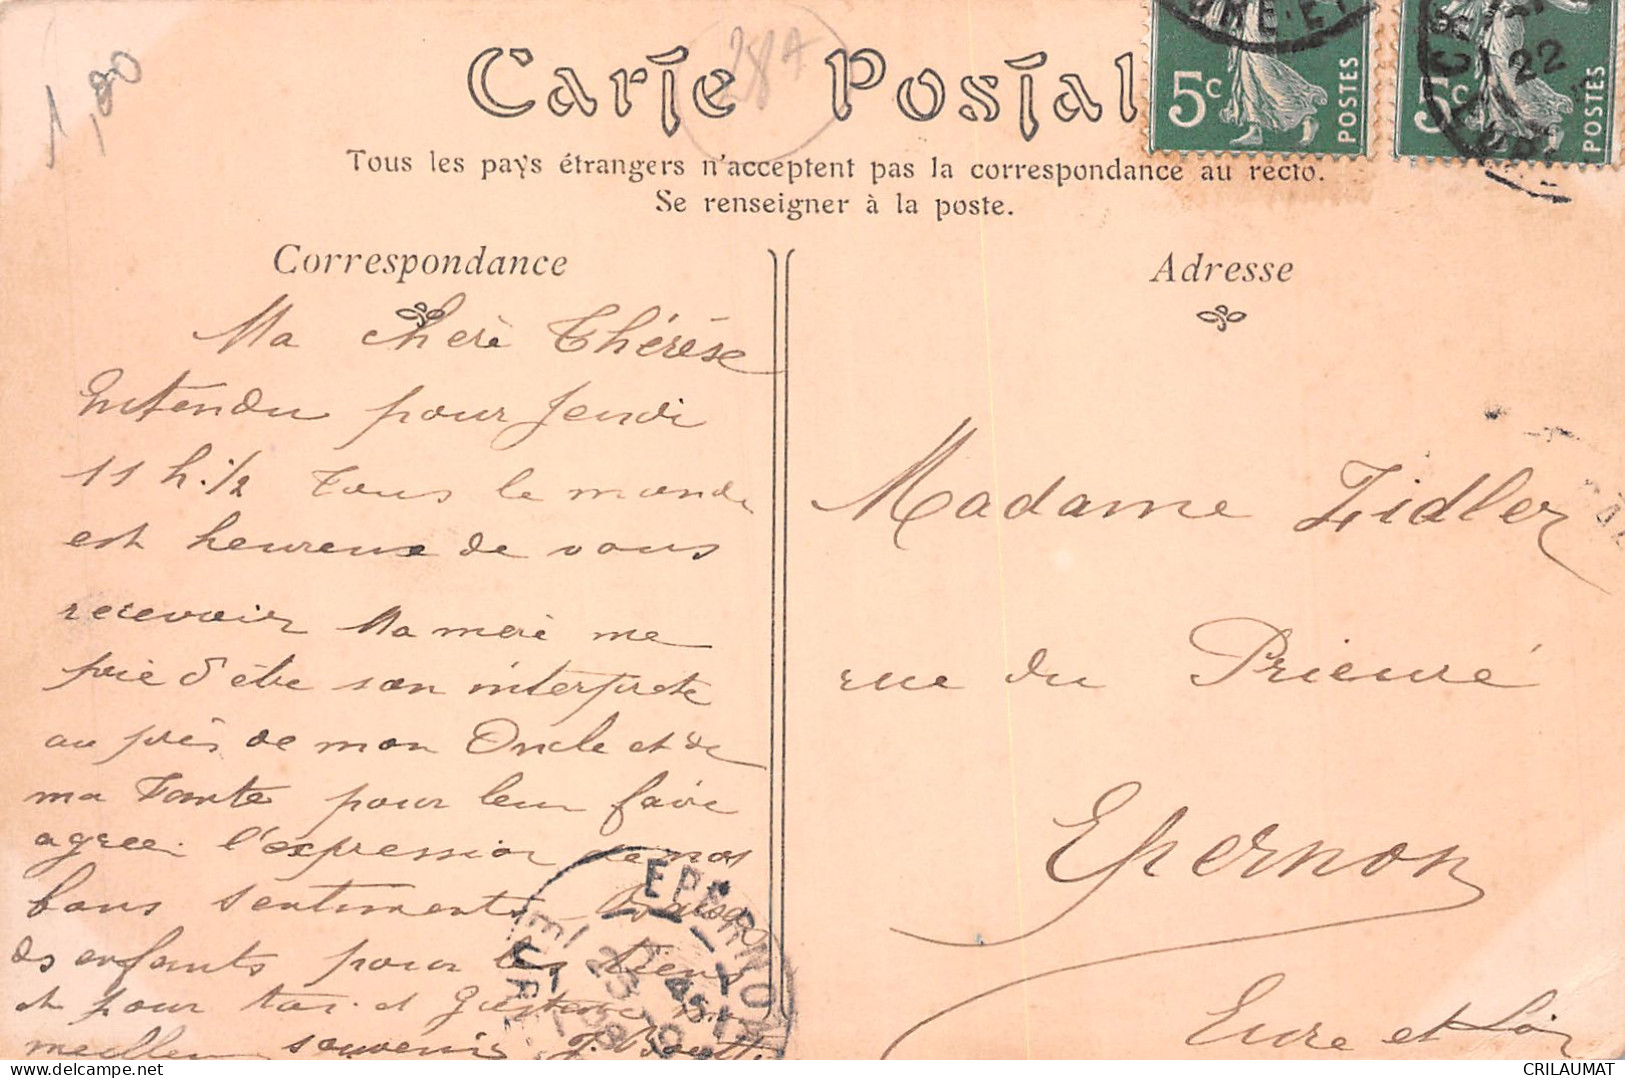 1,00
28A
Carte Postal
5c POSTES
5c POSTES
22
Tous les pays étrangers n'acceptent pas la correspondance au recto.
Se renseigner à la poste.
Correspondance
Ma chère Thérèse
Entendu pour Jeudi
11 h. 1/2 Tous le monde
est heureux de vous
recevoir Ma mère me
prie d'être son interprete
au près de mon Oncle et de
ma Tante pour leur faire
agreer l'expression de nos
bons sentiments
des enfants pour les tiens
et pour toi et
meilleur souvenir
EPERNON
23
Adresse
Madame Zidler
rue du Prieuré
Epernon
Eure et Loir
CRILAUMAT